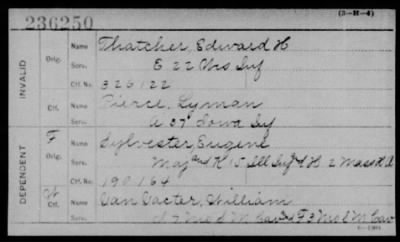 (3—H—4)
236250
INVALID
Orig.
Name Thatcher, Edward H
Serv. E 22 Wis Inf
Ctf. No. 326122
Ctf.
Name Pierce, Lyman
Serv. A 37 Iowa Inf
DEPENDENT
F
Orig.
Name Sylvester, Eugene
Serv. Maj and K 15 Ill Inf H 2 Mass H A
Ctf. No. 190164
W
Ctf.
Name Van Vacter, William
Serv. 7 Mo S M Cav F 3 Mo S M Cav